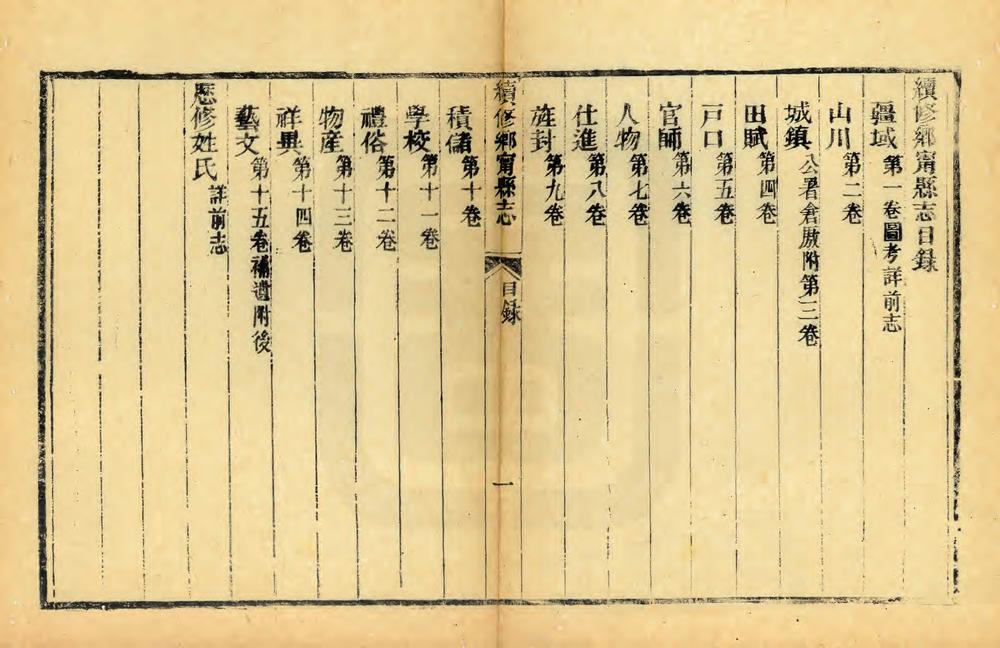 續修鄉甯縣志目錄
疆域 第一卷圖考詳前志
山川 第二卷
城鎮 公署倉廒附第三卷
田賦 第四卷
戸口 第五卷
官師 第六卷
人物 第七卷
仕進 第八卷
旌封 第九卷
續修鄉甯縣志 目録 一
積儲 第十卷
學校 第十一卷
禮俗 第十二卷
物産 第十三卷
祥異 第十四卷
藝文 第十五卷補遺附後
歷修姓氏 詳前志